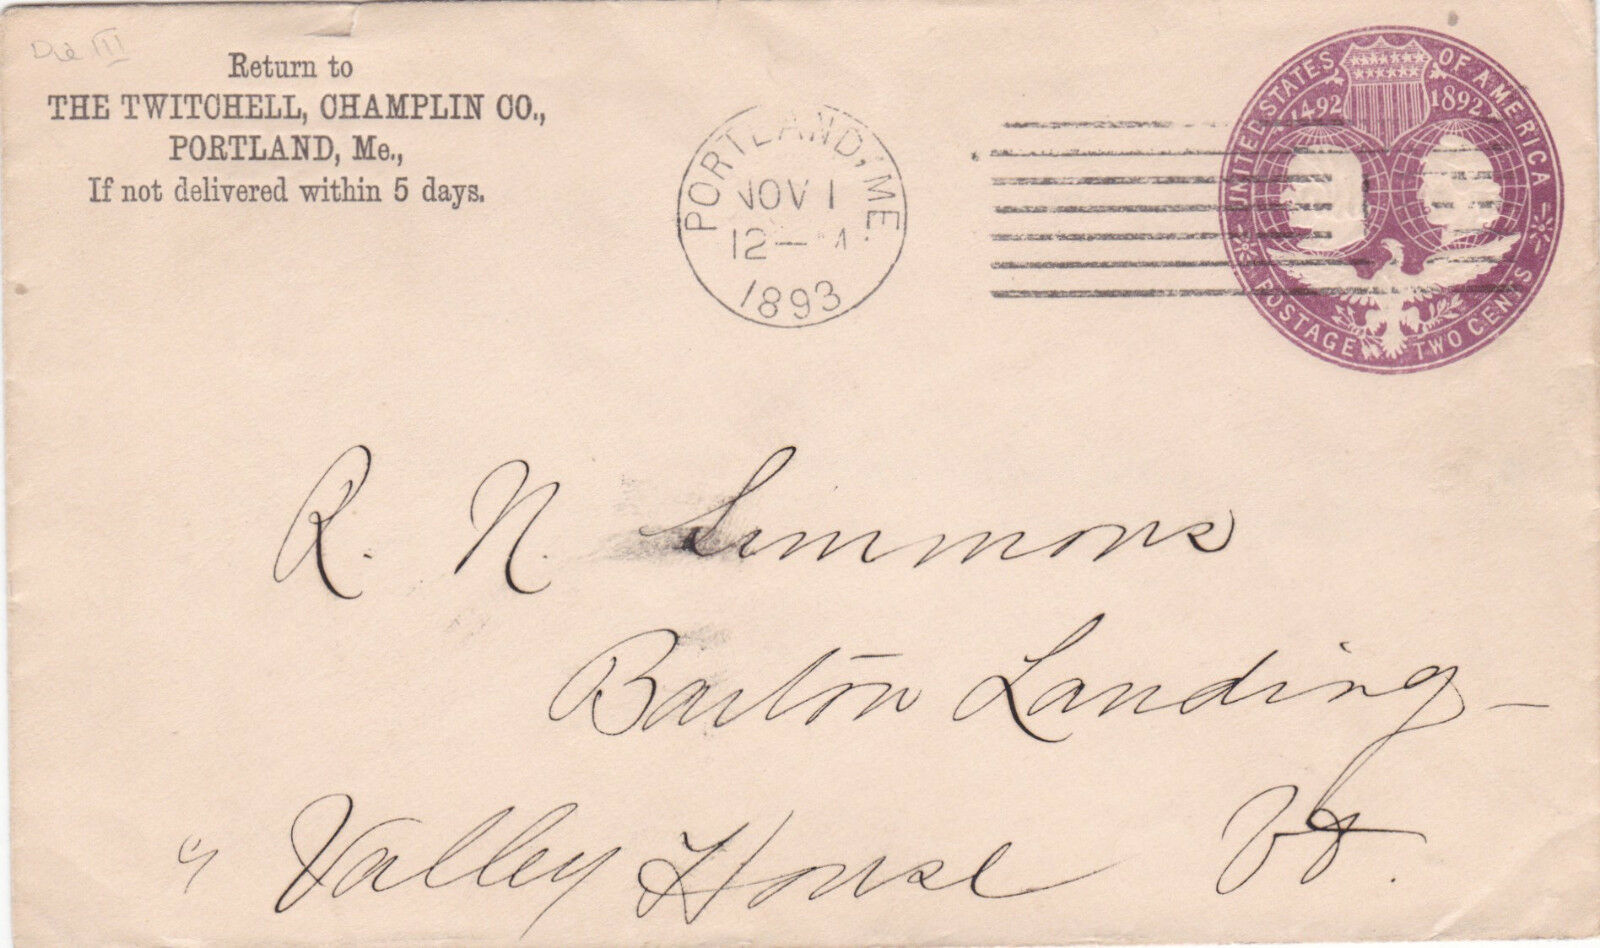 Die III
Return to
THE TWITCHELL, CHAMPLIN CO.,
PORTLAND, Me.,
If not delivered within 5 days.
PORTLAND, ME.
NOV 1
12— M
1893
UNITED STATES OF AMERICA
1492 1892
POSTAGE TWO CENTS
R. N. Simmons
Barton Landing –
" Valley House Vt.